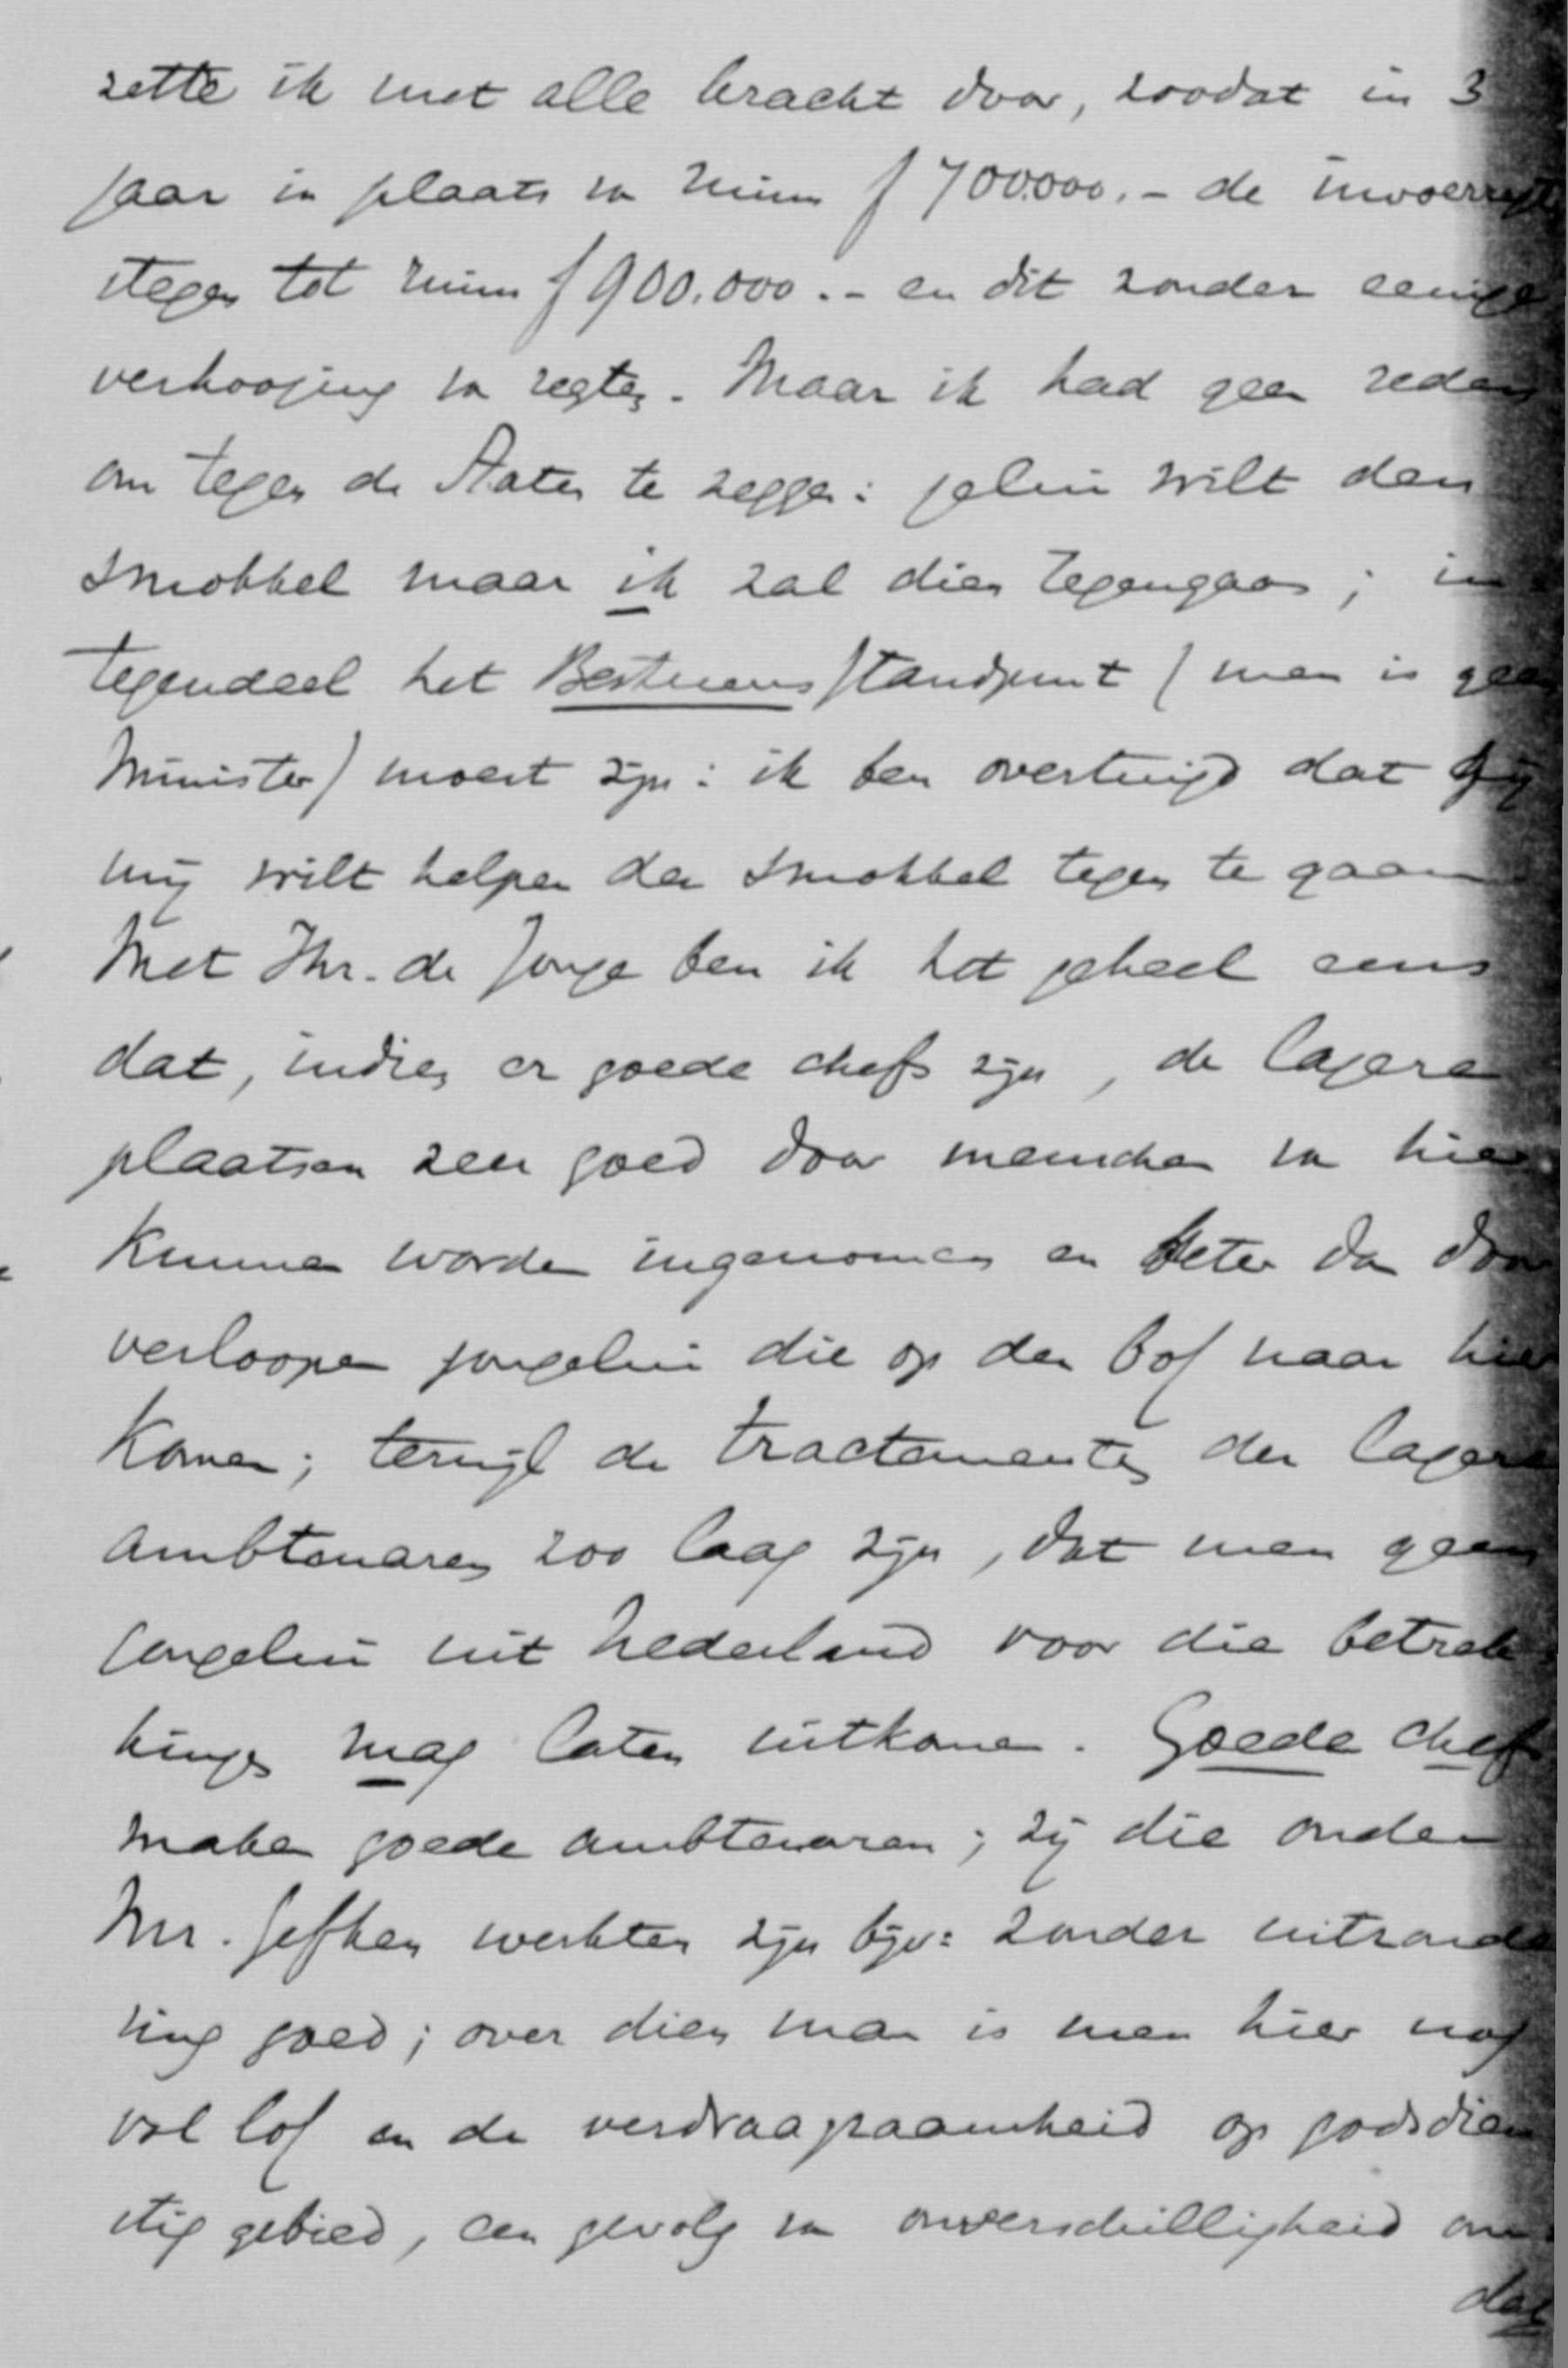 zette ik met alle kracht door, zoodat in 3
jaar in plaats va ruim f 700.000.- de invoerregt
stegen tot ruim f 900.000.- en dit zonder eenige
verhooging va regten. Maar ik had geen reden
om tegen de Staten te zeggen: jelui wilt den
smokkel maar ik zal dien tegengaan; in
tegendeel het Bestuursstandpunt (men is geen
Minister) moest zijn: ik ben overtuigd dat gij
mij wilt helpen den smokkel tegen te gaan
Met Jhr. de Jonge ben ik het geheel eens
dat, indien er goede chefs zijn, de lagere
plaatsen zeer goed door menschen va hier
kunnen worden ingenomen en beter dan door
verloopen jongelui die op den bof naar hier
komen; terwijl de tractementen der lagere
ambtenaren zoo laag zijn, dat men geen
jongelui uit Nederland voor die betrek
kingen mag laten uitkomen. Goede chefs
maken goede ambtenaren; zij die onder
Mr. Gefken werkten zijn bijv: zonder uitzonde
ring goed; over dien man is men hier nog
vol lof en de verdraagzaamheid op godsdien
stig gebied, een gevolg va onverschilligheid om
dat